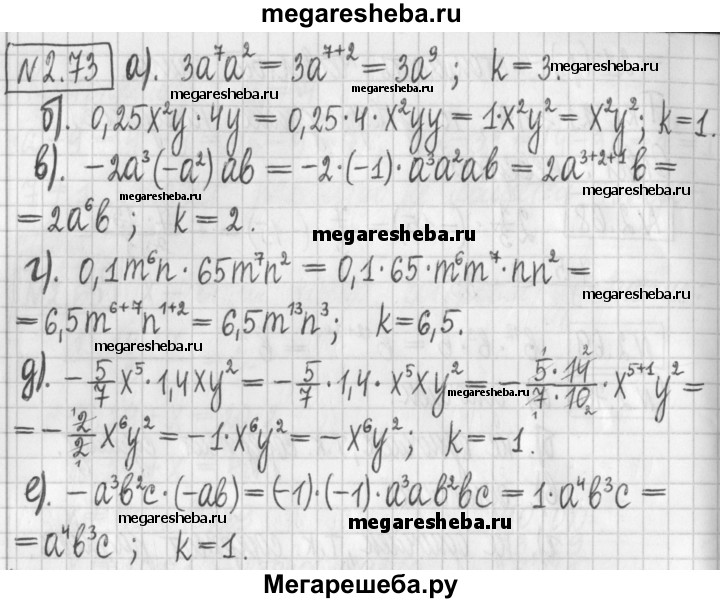 megaresheba.ru
№2.73 а). 3a⁷a² = 3a⁷⁺² = 3a⁹ ; k = 3.
megaresheba.ru megaresheba.ru megaresheba.ru
б). 0,25x²y · 4y = 0,25·4·x²yy = 1·x²y² = x²y²; k=1.
в). -2a³(-a²)ab = -2·(-1)·a³a²ab = 2a³⁺²⁺¹b =
megaresheba.ru megaresheba.ru megaresheba.ru
= 2a⁶b ; k = 2.
megaresheba.ru
г). 0,1m⁶n · 65m⁷n² = 0,1·65·m⁶m⁷·nn² =
megaresheba.ru
= 6,5m⁶⁺⁷n¹⁺² = 6,5m¹³n³; k=6,5.
megaresheba.ru megaresheba.ru
д). -5/7 x⁵·1,4xy² = -5/7 · 1,4 · x⁵xy² = - 5·14/7·10 · x⁵⁺¹y² =
megaresheba.ru
= - 2/2 x⁶y² = -1·x⁶y² = -x⁶y²; k=-1.
megaresheba.ru megaresheba.ru
е). -a³b²c·(-ab) = (-1)·(-1)·a³ab²bc = 1·a⁴b³c =
megaresheba.ru megaresheba.ru
= a⁴b³c ; k=1.
Мегарешеба.ру